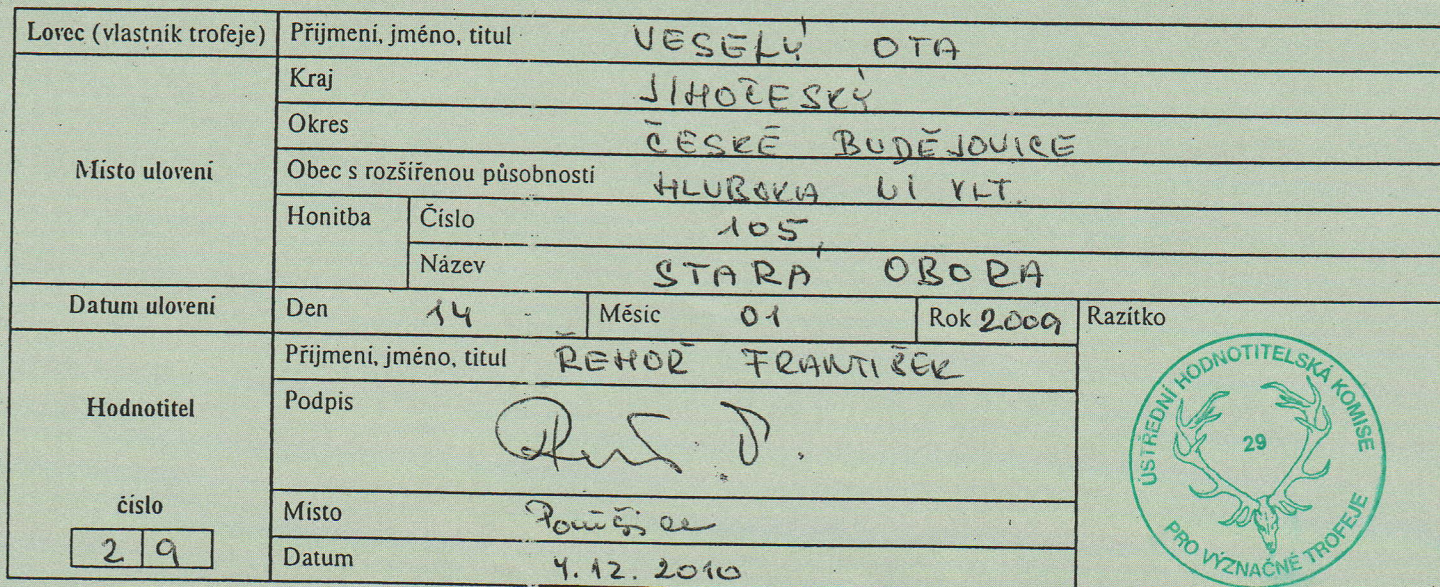 Lovec (vlastník trofeje) Příjmení, jméno, titul VESELÝ OTA
Místo ulovení
Kraj JIHOČESKÝ
Okres ČESKÉ BUDĚJOVICE
Obec s rozšířenou působností HLUBOKA VLT.
Honitba Číslo 105
Název STARÁ OBORA
Datum ulovení Den 14 Měsíc 01 Rok 2009 Razítko
Hodnotitel
Příjmení, jméno, titul ŘEHOŘ FRANTIŠEK
Podpis
číslo
29
Místo
Datum 4.12.2010
ÚSTŘEDNÍ HODNOTITELSKÁ KOMISE
29
PRO VÝZNAČNÉ TROFEJE